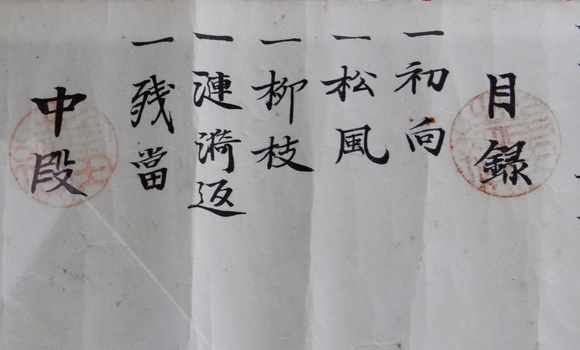 目録
一初向
一松風
一柳枝
一漣漪返
一残當
中段